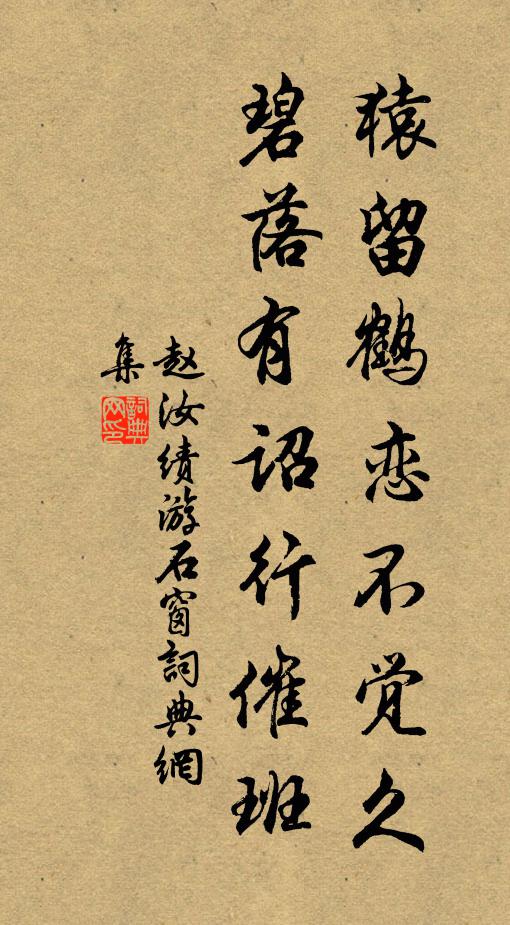 猿留鹤恋不觉久
碧落有诏行催班
赵汝绩游石窗詞典網
集
詞典
网印